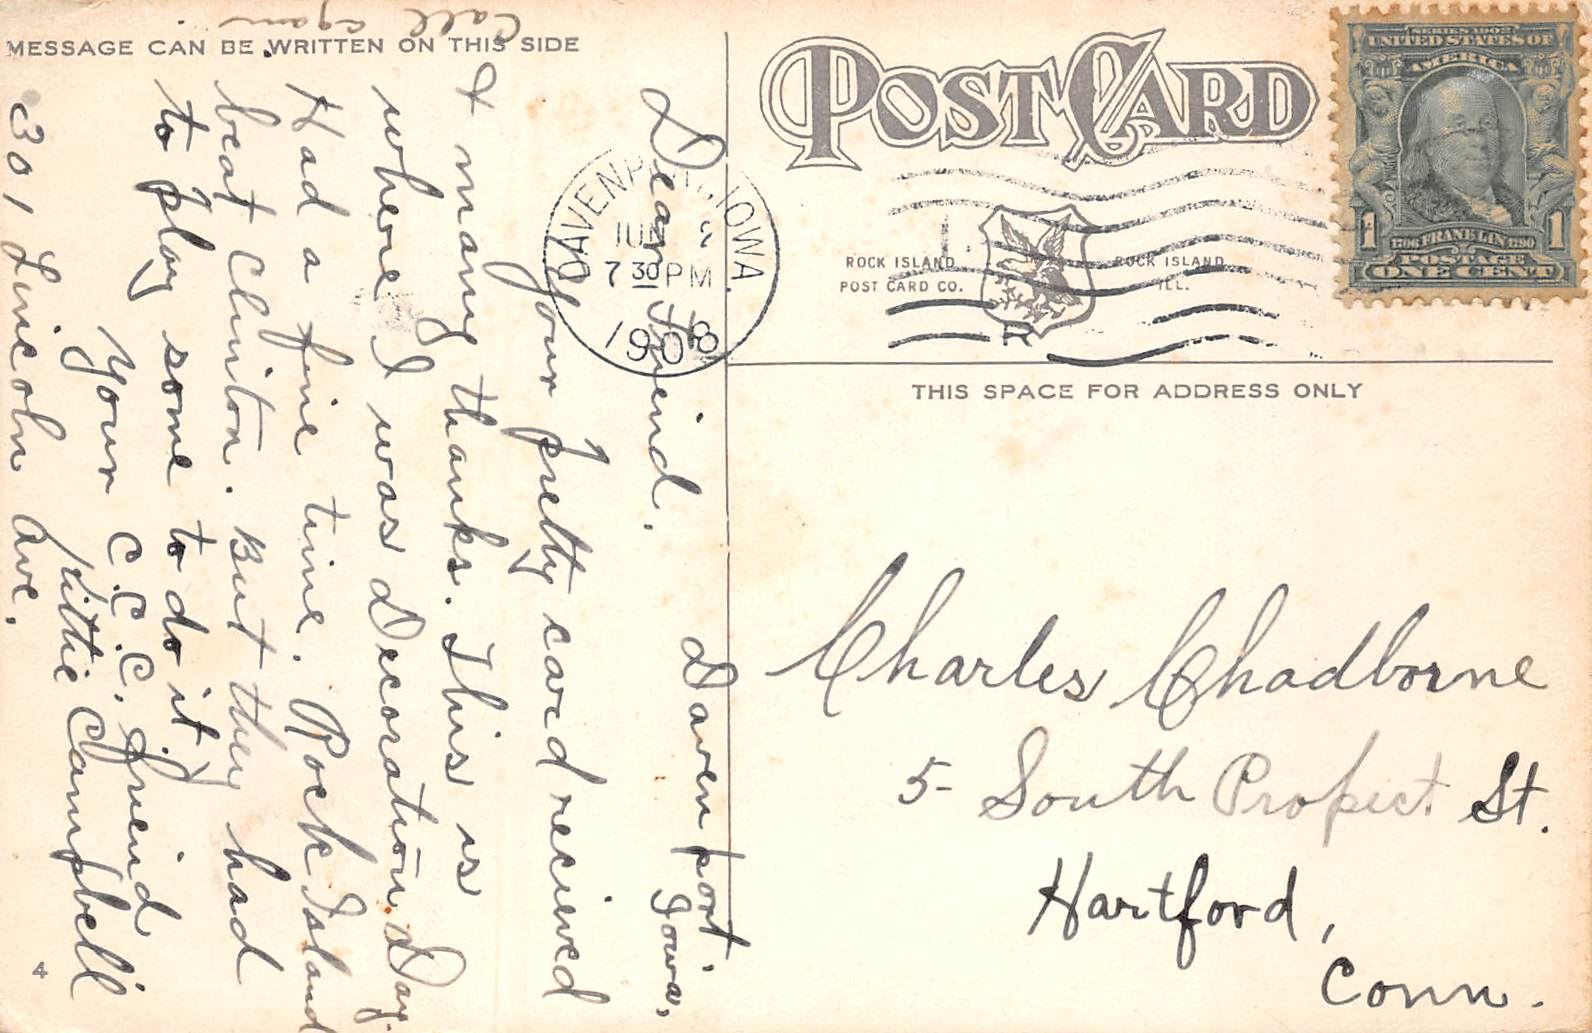 MESSAGE CAN BE WRITTEN ON THIS SIDE
POST CARD
SERIES 1902
UNITED STATES OF
AMERICA
1706 FRANKLIN 1790
1 1
POSTAGE
ONE CENT
DAVENPORT, IOWA.
7 30 PM
1908
ROCK ISLAND
POST CARD CO.
ROCK ISLAND
ILL.
THIS SPACE FOR ADDRESS ONLY
Charles Chadborne
5- South Propect St.
Hartford,
Conn.
Davenport
Iowa,
Dear Freind.
Your pretty card received
& many thanks. This is
where I was Decoration Day.
Had a fine time. Rock Island
beat Clinton. But they had
to play some to do it.
Your C.C.C. freind
Kittie Campbell
301 Lincoln Ave.
Call again.
4